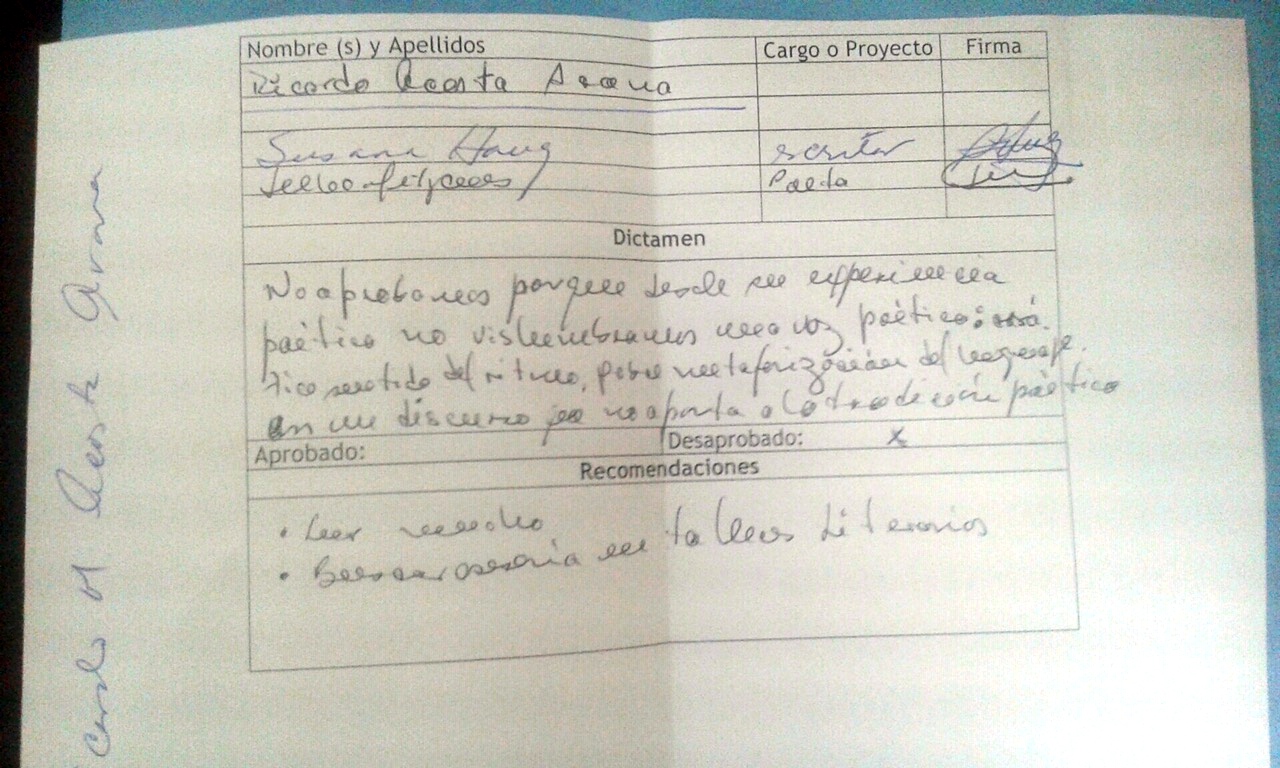 Nombre (s) y Apellidos Cargo o Proyecto Firma
Ricardo Acosta Arana
Susana Haug escritor
Poeta
Dictamen
No aprobamos porque desde su experiencia
poética no vislumbramos una voz poética:
sentido del ritmo, pobre metaforización del lenguaje
en un discurso que no aporta a la tradición poética
Aprobado: Desaprobado: x
Recomendaciones
• Leer mucho
• Buscar asesoría en talleres literarios
Acosta Arana